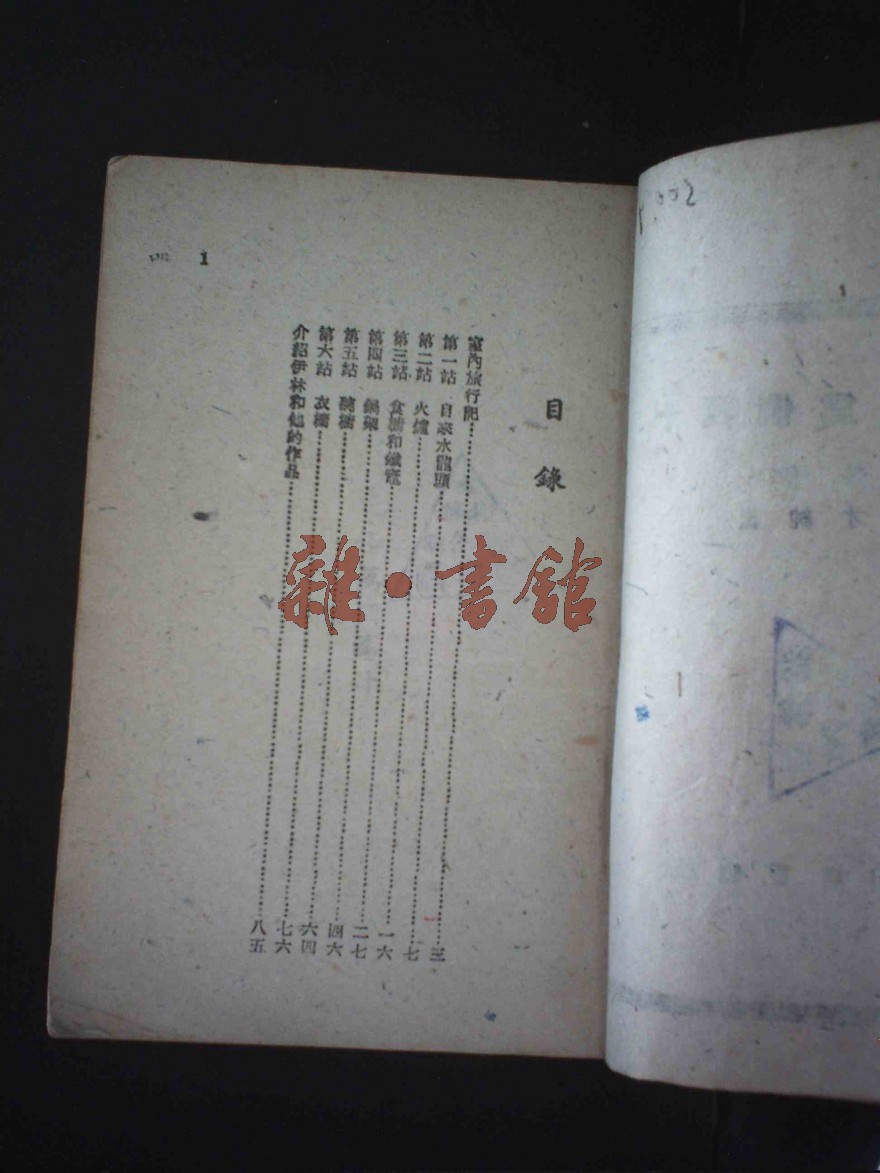 目錄
室內旅行記……三
第一站 自來水龍頭……七
第二站 火爐……一六
第三站 食櫥和鐵竈……二七
第四站 鍋架……四六
第五站 碗櫥……六四
第六站 衣櫥……七六
介紹伊林和他的作品……八五
1
雜·書館